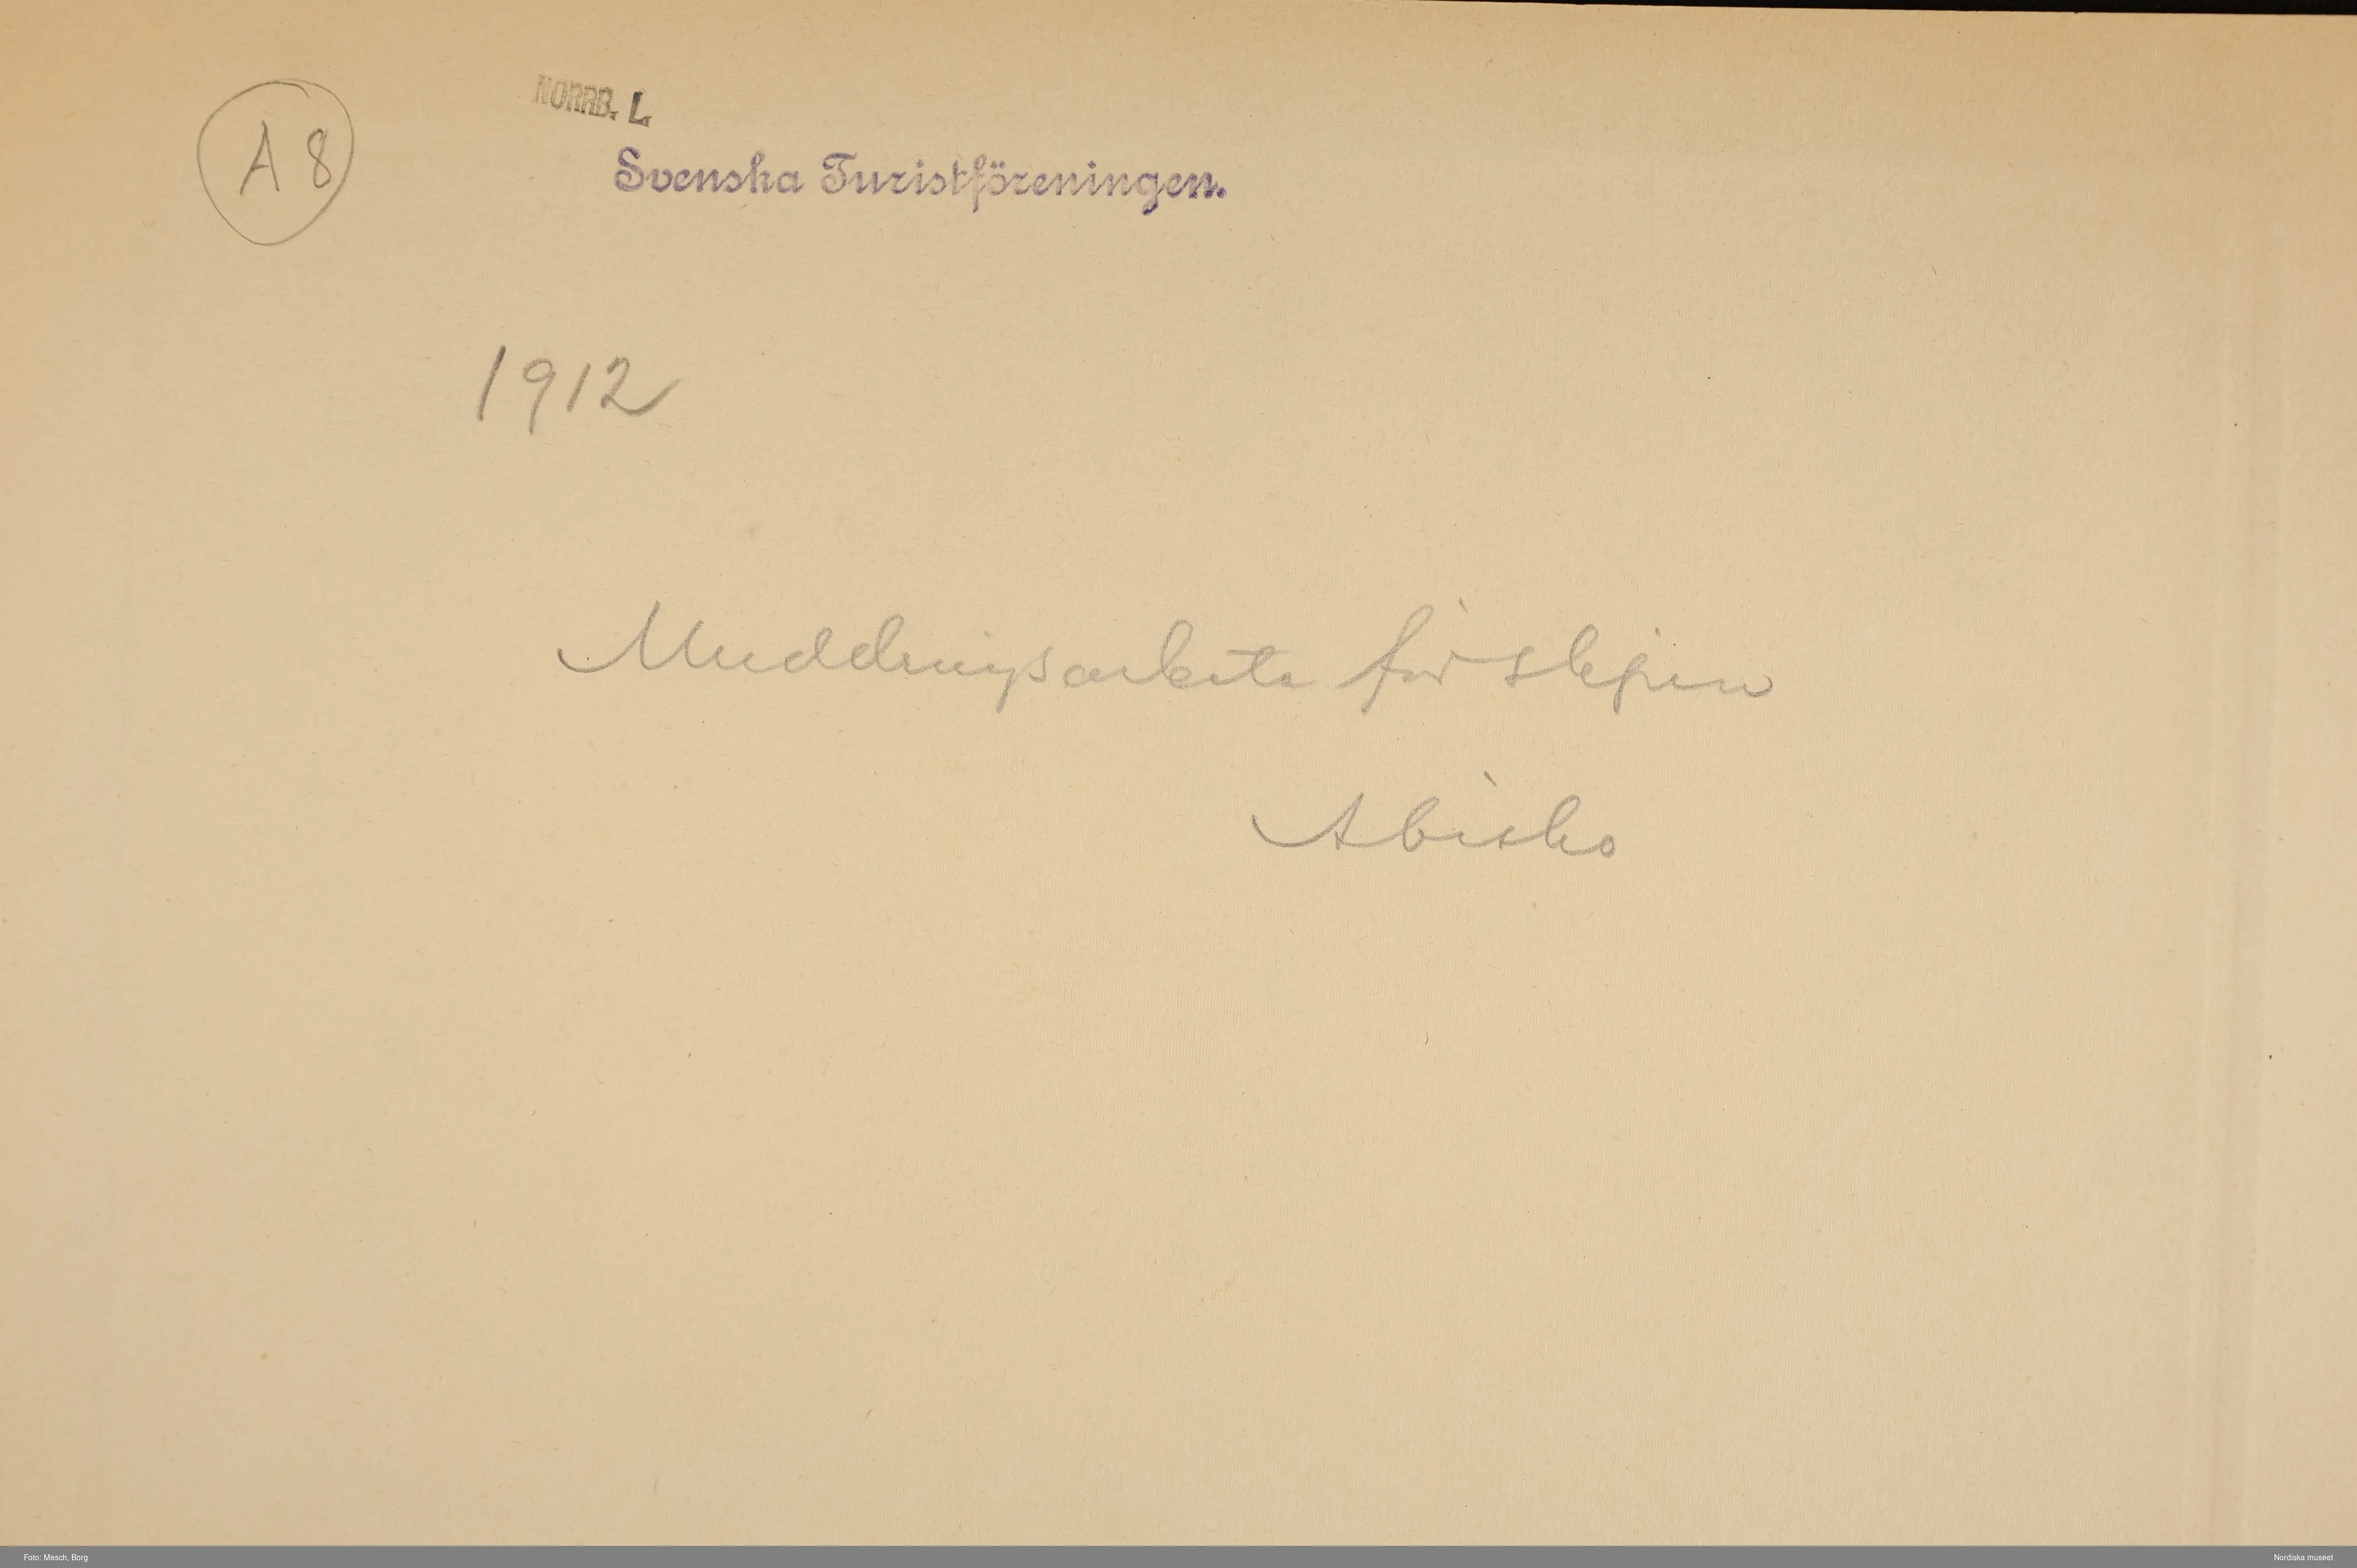 A 8
NORRB. L.
Svenska Turistföreningen.
1912
Muddringsarbete för slipen
Abisko
Foto: Mesch, Borg
Nordiska museet